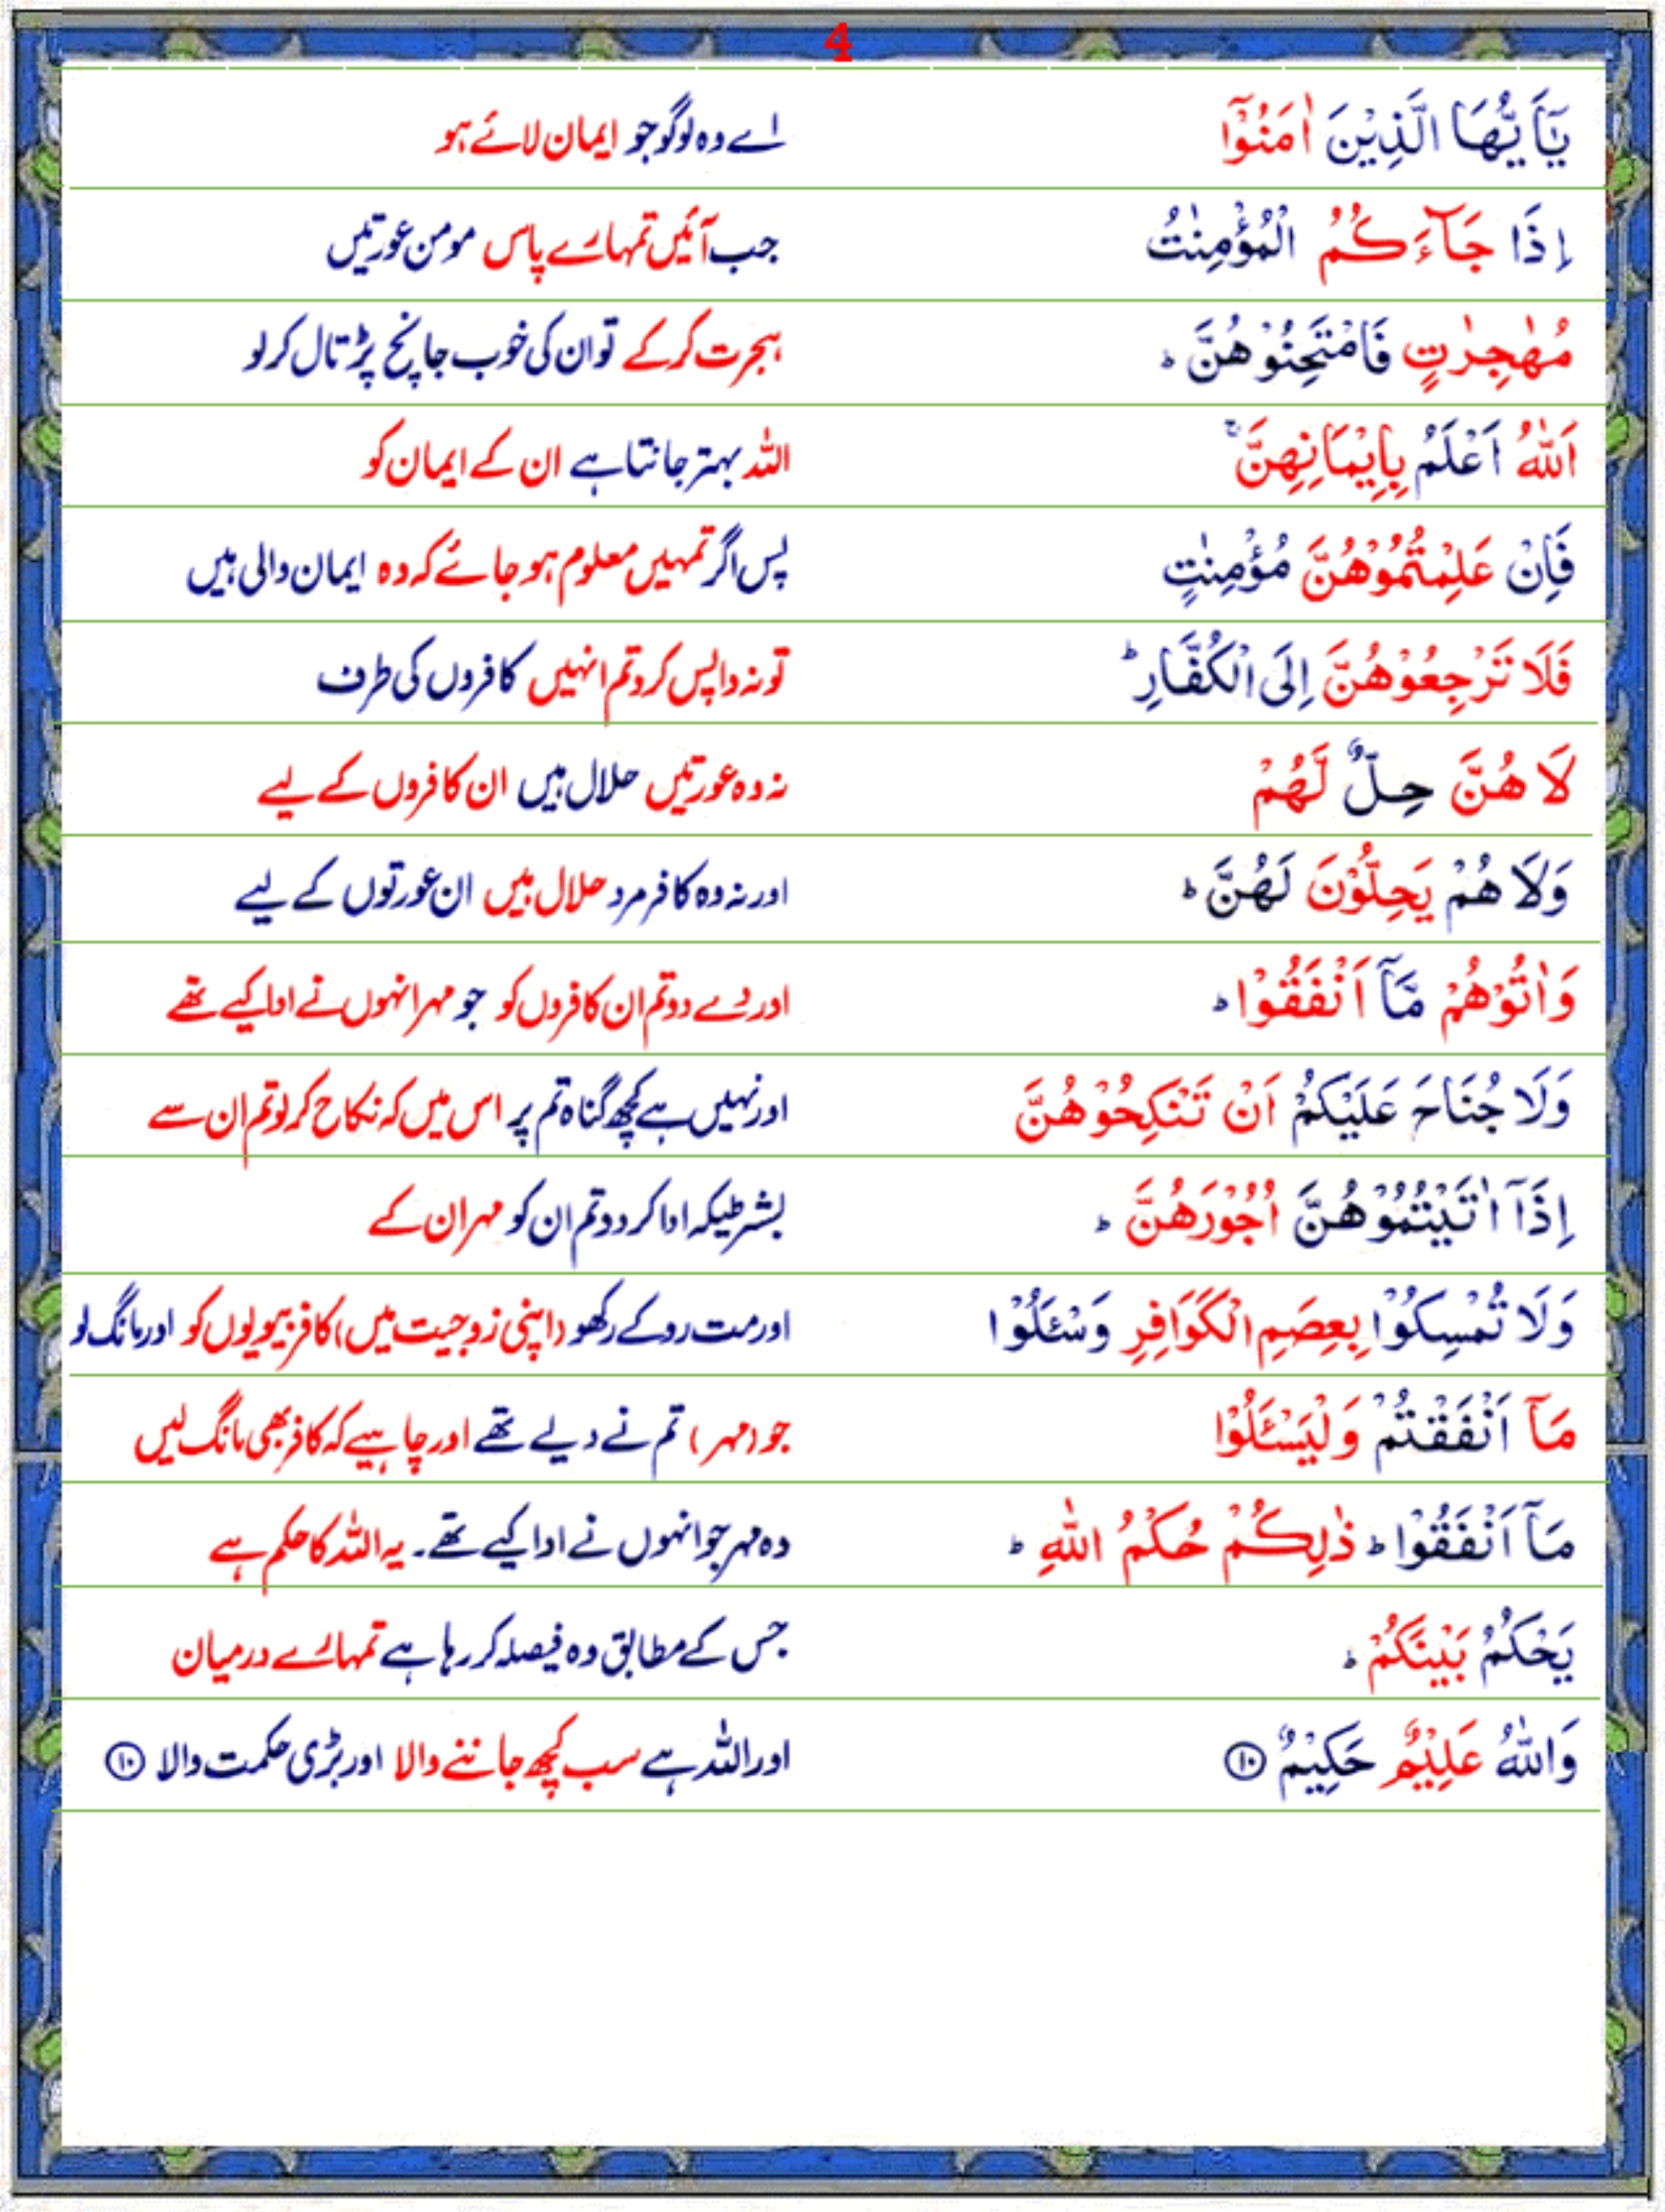 4
يٰٓاَيُّهَا الَّذِيْنَ اٰمَنُوْٓا اے وہ لوگو جو ایمان لائے ہو
اِذَا جَآءَكُمُ الْمُؤْمِنٰتُ جب آئیں تمہارے پاس مومن عورتیں
مُهٰجِرٰتٍ فَامْتَحِنُوْهُنَّ ؕ ہجرت کرکے تو ان کی خوب جانچ پڑتال کرلو
اَللّٰهُ اَعْلَمُ بِاِيْمَانِهِنَّ ۚ اللہ بہتر جانتا ہے ان کے ایمان کو
فَاِنْ عَلِمْتُمُوْهُنَّ مُؤْمِنٰتٍ پس اگر تمہیں معلوم ہو جائے کہ وہ ایمان والی ہیں
فَلَا تَرْجِعُوْهُنَّ اِلَى الْكُفَّارِ ؕ تو نہ واپس کرو تم انہیں کافروں کی طرف
لَا هُنَّ حِلٌّ لَّهُمْ نہ وہ عورتیں حلال ہیں ان کافروں کے لیے
وَلَا هُمْ يَحِلُّوْنَ لَهُنَّ ؕ اور نہ وہ کافر مرد حلال ہیں ان عورتوں کے لیے
وَاٰتُوْهُمْ مَّآ اَنْفَقُوْا ؕ اور دے دو تم ان کافروں کو جو مہر انہوں نے ادا کیے تھے
وَلَا جُنَاحَ عَلَيْكُمْ اَنْ تَنْكِحُوْهُنَّ اور نہیں ہے کچھ گناہ تم پر اس میں کہ نکاح کر لو تم ان سے
اِذَآ اٰتَيْتُمُوْهُنَّ اُجُوْرَهُنَّ ؕ بشرطیکہ ادا کر دو تم ان کو مہر ان کے
وَلَا تُمْسِكُوْا بِعِصَمِ الْكَوَافِرِ وَسْـَٔلُوْا اور مت روکے رکھو (اپنی زوجیت میں) کافر بیویوں کو اور مانگ لو
مَآ اَنْفَقْتُمْ وَلْيَسْـَٔلُوْا جو (مہر) تم نے دیے تھے اور چاہیے کہ کافر بھی مانگ لیں
مَآ اَنْفَقُوْا ؕ ذٰلِكُمْ حُكْمُ اللّٰهِ ؕ وہ مہر جو انہوں نے ادا کیے تھے۔ یہ اللہ کا حکم ہے
يَحْكُمُ بَيْنَكُمْ ؕ جس کے مطابق وہ فیصلہ کر رہا ہے تمہارے درمیان
وَاللّٰهُ عَلِيْمٌ حَكِيْمٌ ⑩ اور اللہ ہے سب کچھ جاننے والا اور بڑی حکمت والا ⑩